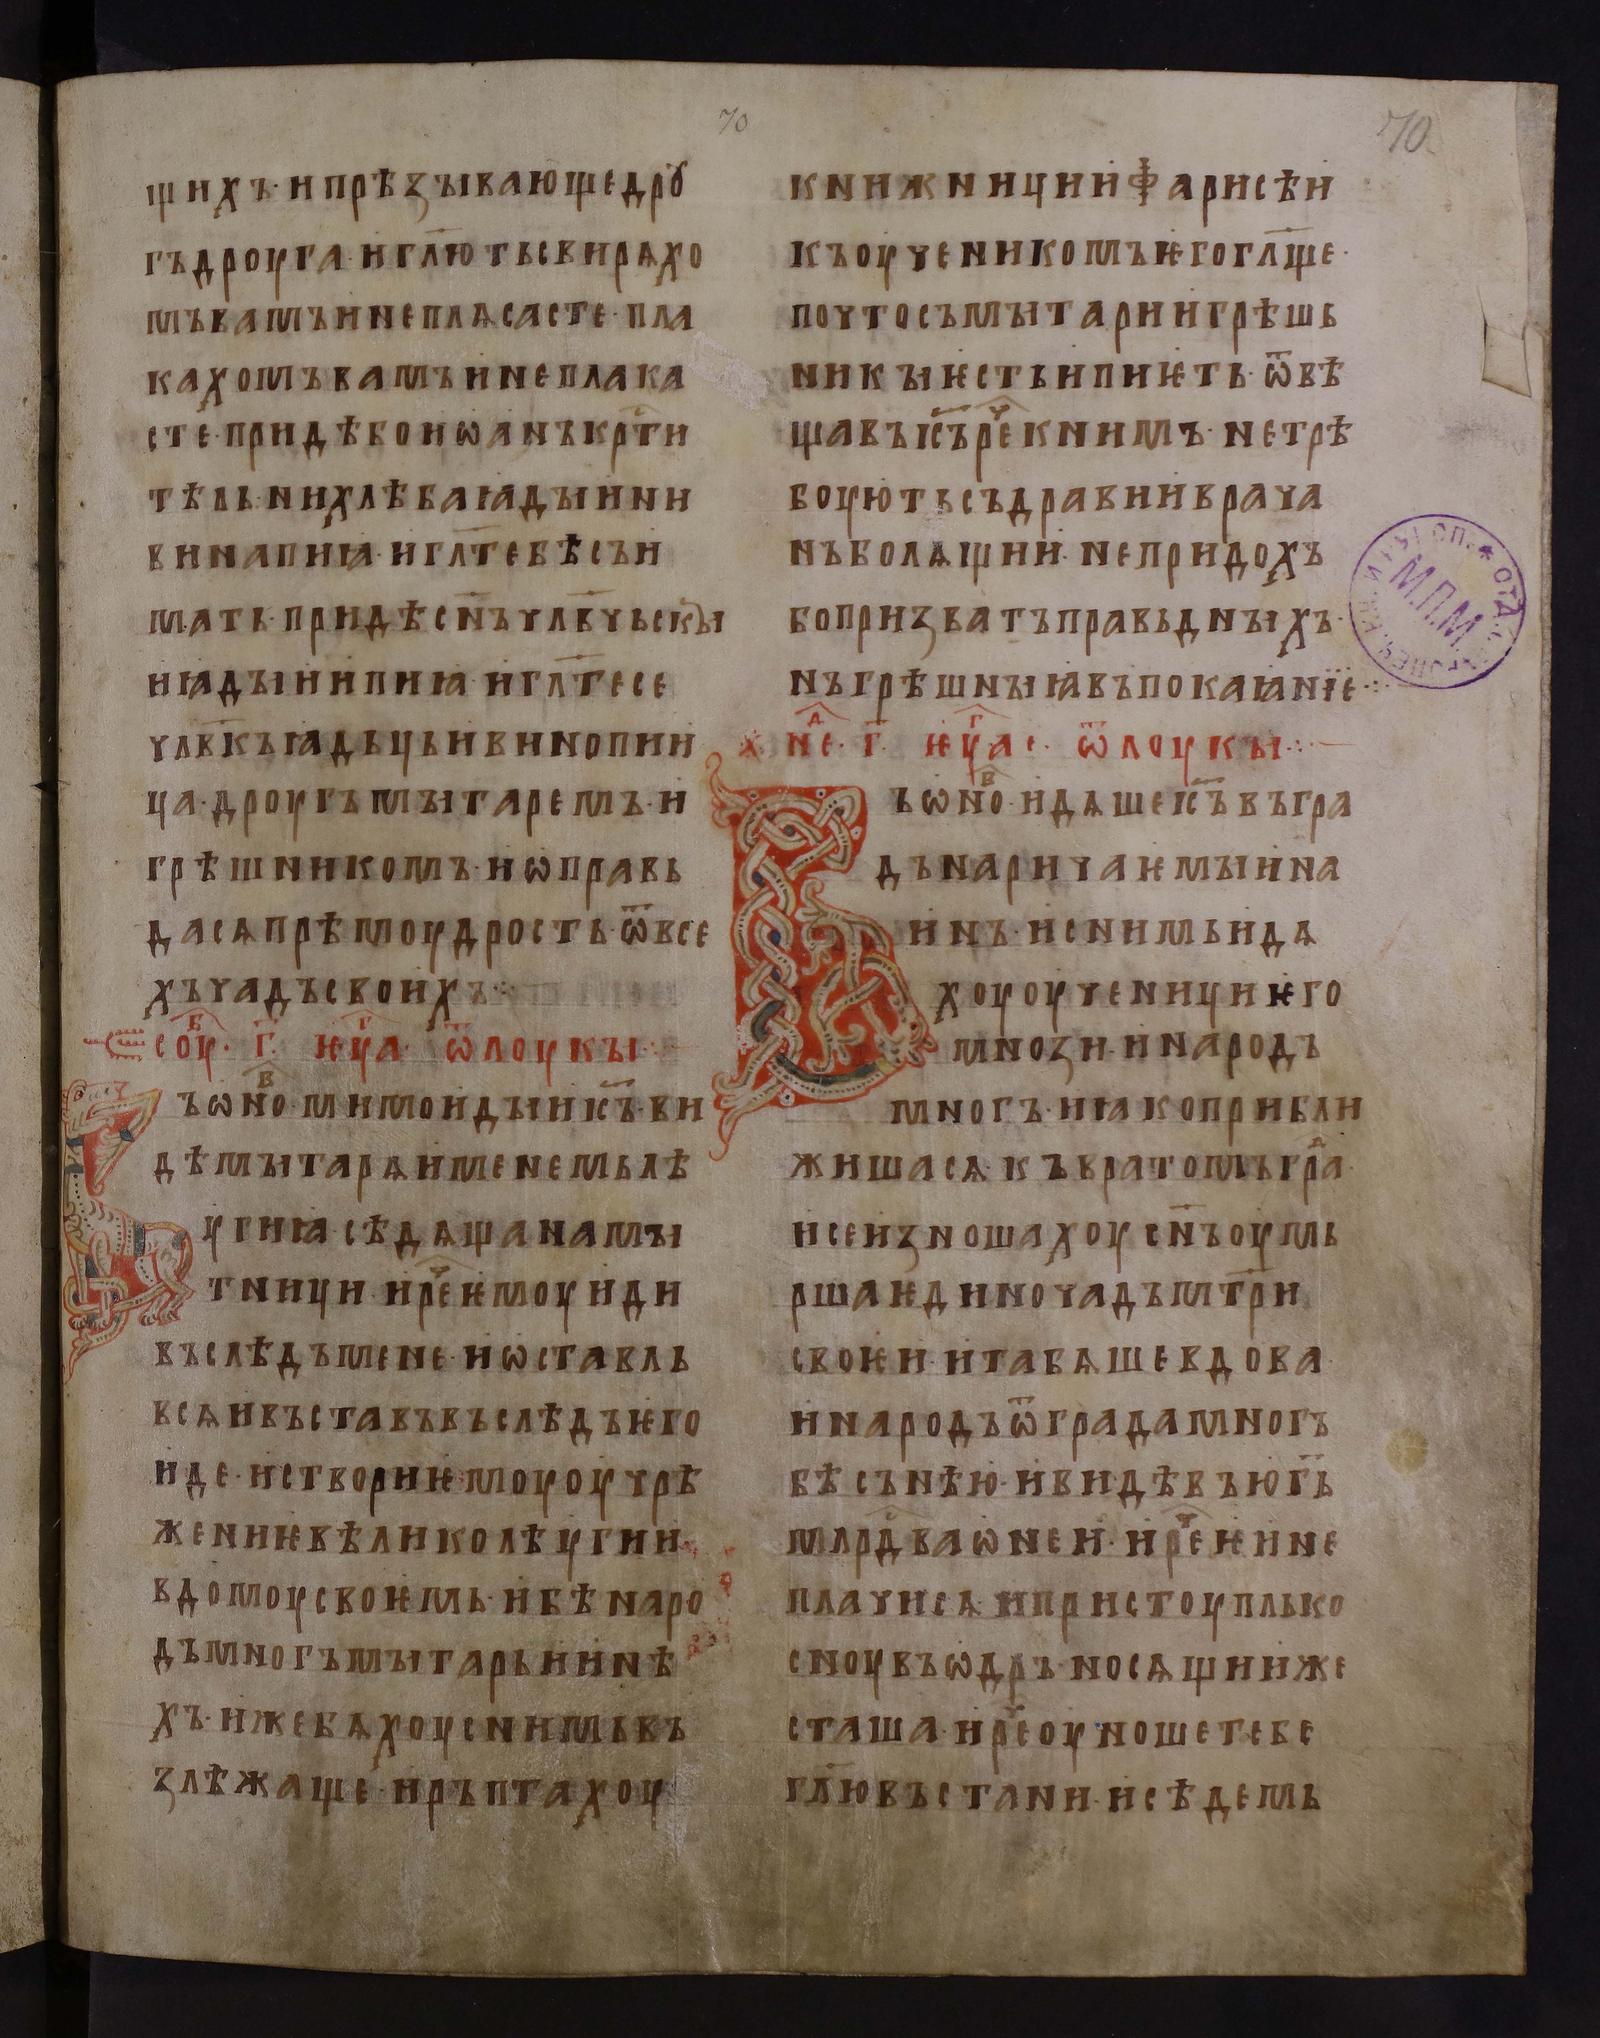 70
70
щихъ· и прѣзывающе дрꙋ
гъ дроуга· и гл҃ють свирѧхо
мъ вамъ и не плѧсасте· пла
кахомъ вамъ и не плака
сте· приде бо иѡанъ крⷭ҇ти
тѣль· ни хлѣба ꙗдыи ни
вина пиꙗ· и гл҃те бѣсъ и
мать· приде сн҃ъ чл҃вчьскꙑ
и ꙗдыи и пиꙗ· и гл҃те се
чл҃вкъ ꙗдьць и винопии
ца· дроугъ мытаремъ· и
грѣшникомъ· и ѡправь
да сѧ прѣмоудрость· ѿ все
хъ чадъ своихъ
соуⷠ҇· г҃· ѥуаⷢ҇· ѿ лоукы
Въ ѡноⷡ҇· мимоидыи ис҃ъ· ви
дѣ мытарѧ именемь лѣ
угиꙗ· сѣдѧща на мꙑ
тници· и реⷱ҇ ѥмоу иди
въ слѣдъ мене· и ѡставль
всѧ и въставъ въ слѣдъ ѥго
иде· и створи ѥмоу оучрѣ
жениѥ вѣлико лѣугии
в домоу своѥмь· и бѣ наро
дъ многъ мытарь и инѣ
хъ· иже бѧхоу с нимь въ
злѣжаще· и ръптахоу
книжници и фарисѣи
къ оученикомъ ѥго гл҃ще·
по что съ мытари и грѣшь
никы ѥсть и пиѥть· ѿвѣ
щавъ ис҃ъ реⷱ҇ к нимъ· не трѣ
боують съдравии врача
нъ болѧщии· не придохъ
бо призватъ правьдныхъ·
нъ грѣшныꙗ въ покаꙗниѥ
неⷣ҇· г҃· ѥуаⷢ҇· ѿ лоукы
Въ ѡноⷡ҇· идѧше ис҃ъ въ гра
дъ наричаѥмыи на
инъ· и с нимь идѧ
хоу оученици ѥго
мнози· и народъ
многъ· и ꙗко прибли
жиша сѧ· къ вратомъ граⷣ҇
и се изношахоу сн҃ъ оумь
рша ѥдиночадъ мт҃ри
своѥи· и та бѧше вдова
и народъ ѿ града многъ
бѣ съ нѣю· и видѣвъ ю г҃ь
млрⷣдва ѡ неи· и реⷱ҇ ѥи не
плачи сѧ· и пристоупль ко
сноу въ ѡдръ· носѧщии же
сташа· и реⷱ҇ оуноше тебе
гл҃ю въстани· и сѣде мь